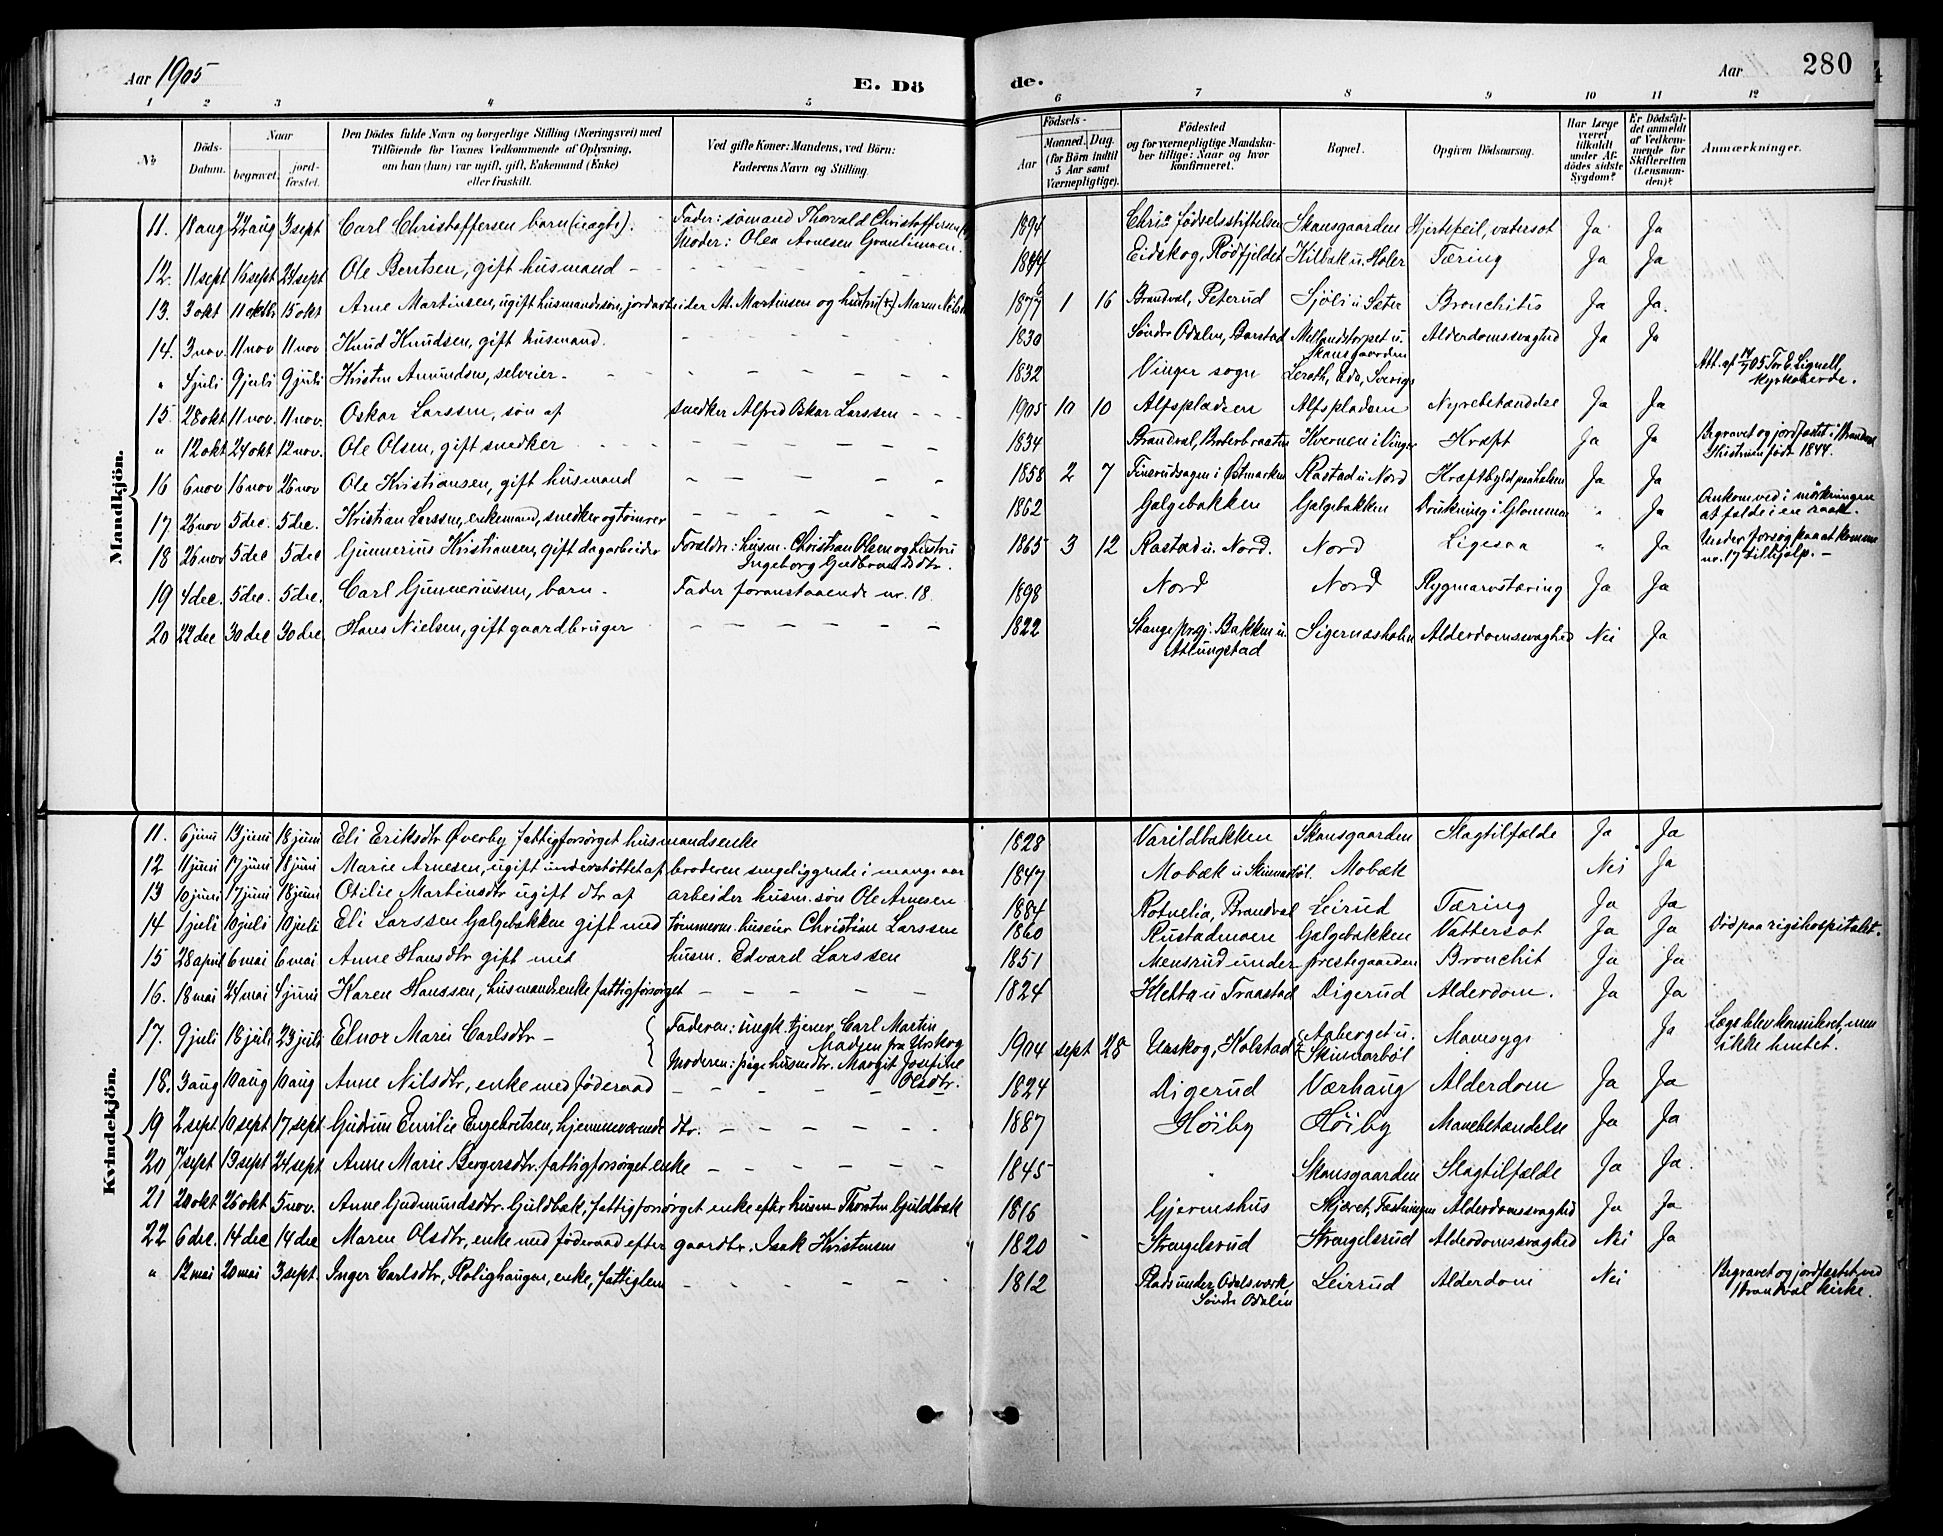 Aar 1905
E. Dö
de.
Aar
280
1 2 3 4 5 6 7 8 9 10 11 12
No
Döds-Datum.
Naar
begravet.
jord-fæstet.
Den Dödes fulde Navn og borgerlige Stilling (Næringsvei) med
Tilföiende for Voxnes Vedkommende af Oplysning,
om han (hun) var ugift, gift, Enkemand (Enke)
eller fraskilt.
Ved gifte Koner: Mandens, ved Börn:
Faderens Navn og Stilling.
Födsels-
Aar
Maaned. Dag.
(for Börn indtil
5 Aar samt
Værnepligtige).
Födested
og for værnepligtige Mandska-
ber tillige: Naar og hvor
konfirmeret.
Bopæl.
Opgiven Dödsaarsag.
Har Læge
været
tilkaldt
under Af-
dödes sidste
Sygdom?
Er Dödsfal-
det anmeldt
af Vedkom-
mende for
Skifteretten
(Lensman-
den)?
Anmærkninger.
Mandkjön.
11. 18 aug 22 aug 3 sept Carl Christoffersen barn (uægte). Fader: sømand Thorvald Christoffersen Moder: Olea Arnesen Granlimoen. 1894 Chria Fødselsstiftelsen Skansgaarden Hjertefeil, vatersot Ja Ja
12. 11 sept 16 sept 24 sept Ole Berntsen, gift husmand Eidskog, Rødfjeldet Kilbak u. Holer Tæring Ja Ja
13. 3 okt 11 oktbr 15 okt Arne Martinsen, ugift husmandssøn, jordarbeider M. Martinsen og hustru Maren Nilsd 1877 1 16 Brandval, Peterud Sjöli u Sæter Bronchitis Ja Ja.
14. 3 nov. 11 nov 11 nov Knud Knudsen, gift husmand. 1830 Söndre Odalen, Barstad Mellandstorpet u. Skansgaarden Alderdomssvaghed Ja Ja
" 4 juli 9 juli 9 juli Kristen Amundsen, selveier. 1832 Vinger sogn Leroth, Eda, Sverige Att. af 05 Tor E. Lignell, kyrkoherde.
15. 28 okt 11 nov. 11 nov. Oskar Larssen, søn af snedker Alfred Oskar Larssen 1905 10 10 Alfspladsen Alfspladsen Nyrebetændelse Ja Ja
" 12 okt 24 okt 12 nov. Ole Olsen, gift snedker 1834 Brandval, Broterbraaten Kvernen i Vinger Kræft Ja Ja Begravet og jordfæstet i Brandval født 1844.
16 6 nov 16 nov 26 nov Ole Kristiansen, gift husmand 1858 2 7 Finerudsagen i Østmarken Rastad u Nord Kræftbyld paa halsen Ja Ja
17. 26 nov 5 dec. 5 dec. Kristian Larssen, enkemand, snedker og tømrer 1862 Galgebakken Galgebakken Drukning i Glommen " Ja Ankom ved i mørkningen at falde i en raak.
18 26 nov 5 dec 5 dec Gunnerius Kristiansen, gift dagarbeider Forældre: husm. Christian Olsen og hustru Ingeborg Gudbrandsdtr. 1865 3 12 Rastad u. Nord. Nord Ligesaa " Ja Under forsøg paa at komme nr. 17 til hjælp.
19 4 dec. 5 dec. 5 dec. Carl Gunneriussen, barn. Fader foranstaaende nr. 18. 1898 Nord Nord Rygmarvstæring Ja Ja
20 22 dec 30 dec 30 dec. Hans Nielsen, gift gaardbruger 1822 Stange prgj. Bakken u. Atlungstad Sigernæsholm Alderdomssvaghed Nei Ja
Kvindekjön.
11. 6 juni 13 juni 18 juni Eli Eriksdtr Øverby fattigforsörget husmandsenke 1828 Varildbakken Skansgaarden Slagtilfælde Ja Ja
12 11 juni 17 juni 18 juni Marie Arnesen, ugift understøttet af broderen sengeliggende i mange aar 1847 Mobæk u Skinnarbøl. Mobæk Nei Ja
13 10 juni 17 juni 18 juni Otilie Martinsdtr ugift dtr af arbeider husm. søn Ole Arnesen 1884 Rotnelia, Brandval Leirud Tæring Ja Ja
14 1 juli 10 juli 10 juli Eli Larssen Galgebakken gift med tömmerm. huseier Christian Larssen 1860 Rustadmoen Galgebakken Vattersot Ja Ja Død paa rigshospitalet.
15 28 april 6 mai 6 mai Anne Hansdtr gift med husm. Edvard Larssen 1851 Mensrud under prestegaarden Bronchit Ja Ja
16. 18 mai 24 mai 4 juni Karen Hanssen, husmandsenke fattigforsörget 1824 Kletta u Traastad Digerud Alderdom. Ja Ja
17. 9 juli 18 juli 23 juli Elnor Marie Carlsdtr Faderen: ungk. tjener Carl Martin Madsen fra Urskog Moderen: pige husmdtr. Margit Josefine Olsdtr. 1904 sept 28 Urskog, Kolstad Aaberget u. Skinnarbøl Mavesyge Ja Læge blev konsuleret, men ikke hentet.
18. 3 aug 10 aug 10 aug Anne Nilsdtr, enke med føderaad 1824 Digerud Værhaug Alderdom Ja Ja
19 2 sept 10 sept 17 sept Gudrun Emilie Engebretsen, hjemmeværende dtr. 1887 Høiby Høiby Mavebetændelse Ja Ja
20 7 sept 13 sept 24 sept Anne Marie Bergersdtr. fattigforsørget enke 1845 " Skansgaarden Slagtilfælde Ja Ja.
21 20 okt 26 okt 5 nov. Anne Gudmundsdtr. Guldbæk, fattigforsørget enke efter husm Thorsten Guldbæk 1816 Gjermshus Skjæret, Fæstningen Alderdomssvaghed Ja Ja
22 6 dec. 14 dec 14 dec Maren Olsdtr, enke med føderaad efter gaardbr. Isak Kristensen 1820 Strengelsrud Strengelsrud Alderdomssvaghed Nei Ja
" 12 mai 20 mai 3 sept. Inger Carlsdtr, Rolighaugen, enke, fattiglem 1812 Plads under Odalsværk, Söndre Odalen Leirrud Alderdom Nei Begravet og jordfæstet ved Brandval kirke.